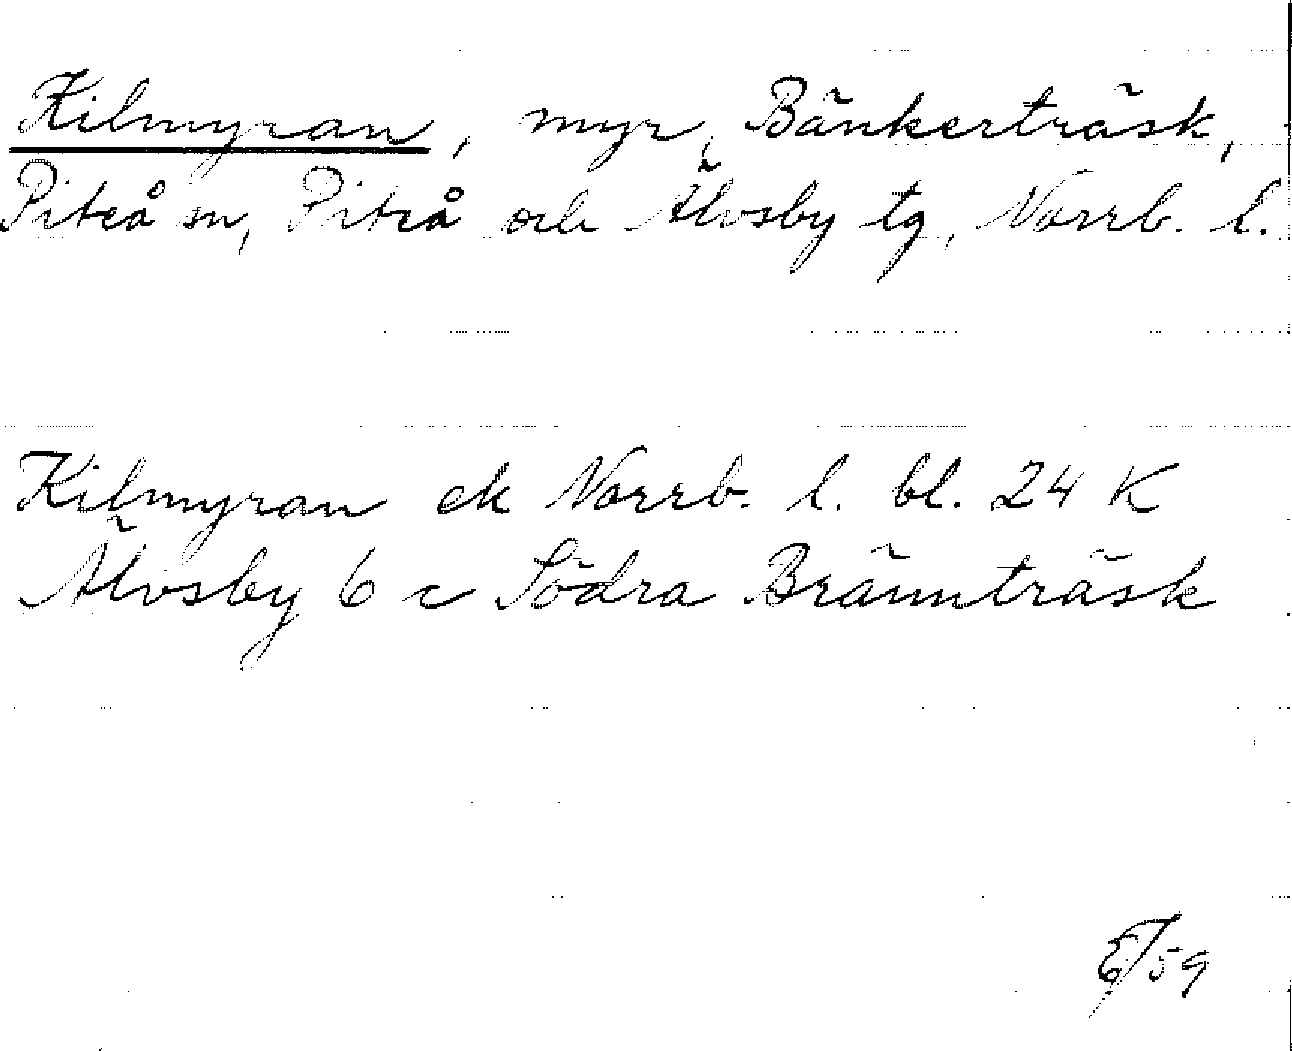 Kilmyran, myr, Bänkerträsk,
Piteå sn, Piteå och Älvsby tg, Norrb. l.
Kilmyran ek Norrb. l. bl. 24 K
Älvsby 6 c Södra Brännträsk
59